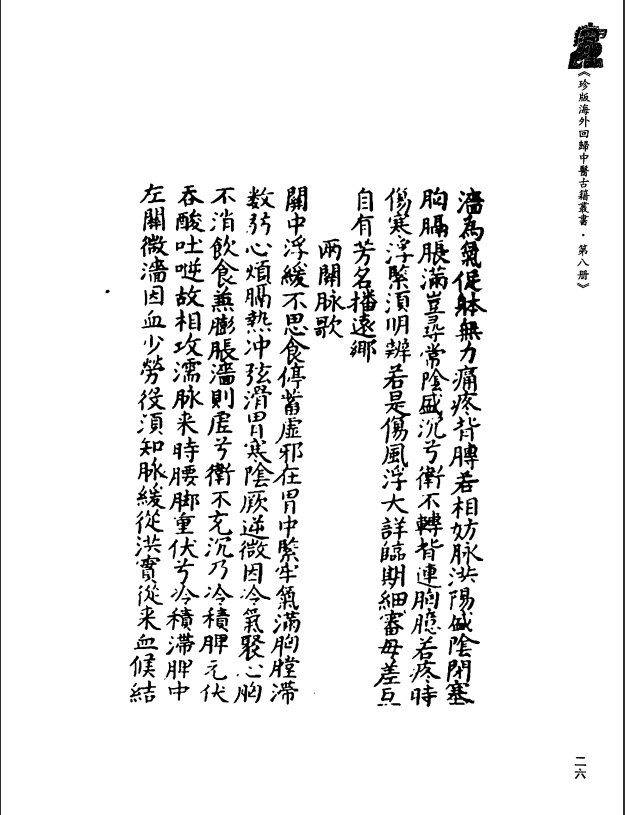 《珍版海外回歸中醫古籍叢書·第八册》
濇為氣促躰無力痛疼背膊若相妨脉洪陽盛陰閉塞
胸膈脹滿豈尋常陰盛沉兮衛不轉背連胸臆若疼時
傷寒浮緊須明辨若是傷風浮大詳臨期細審毋差互
自有芳名播遠鄉
兩關脉歌
關中浮緩不思食停蓄虚邪在胃中緊牢氣滿胸膛滯
数弦心煩膈熱冲弦滑胃寒陰厥逆微因冷氣聚心胸
不消飲食兼膨脹濇則虚兮衛不充沉乃冷積脾元伏
吞酸吐逆故相攻濡脉来時腰脚重伏兮冷積滯脾中
左關微濇因血少勞役須知脉緩從洪實從来血候結
二六